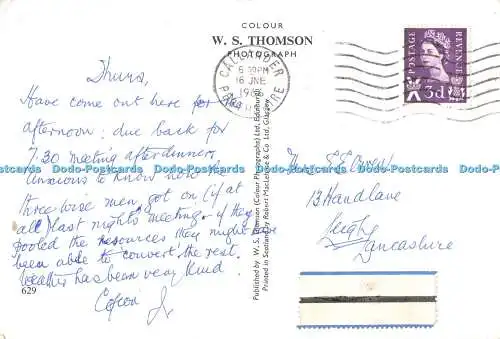 COLOUR
W. S. THOMSON
PHOTOGRAPH
Thurs,
Have come out here for the
afternoon: due back for
7.30 meeting after dinner,
Anxious to know how the
three wise men got on (if at
all) last nights meeting - if they
pooled the resources they might have
been able to convert the rest.
Weather has been very kind
629
Published by W. S. Thomson (Colour Photographs) Ltd., Edinburgh
Printed in Scotland by Robert MacLehose & Co. Ltd., Glasgow
CALLANDER
PERTHSHIRE
16 JNE
POSTAGE
REVENUE
3d
13 Hand Lane
Leigh
Lancashire
Dodo-Postcards Dodo-Postcards Dodo-Postcards Dodo-Postcards Dodo-Postcards Dodo-Postcards Dodo-Postcards